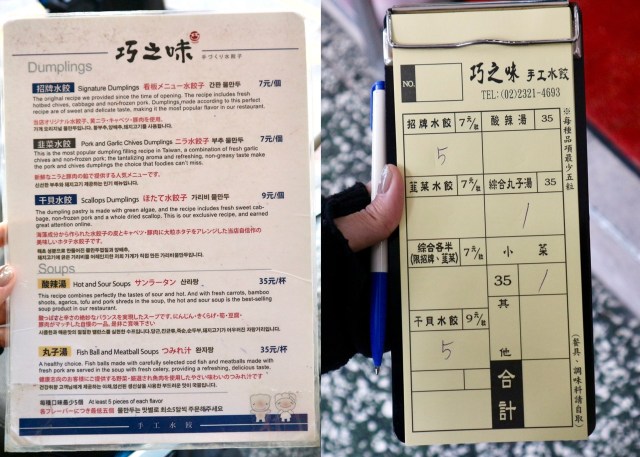 巧之味
手づくり水餃子
Dumplings
招牌水餃 Signature Dumplings 看板メニュー水餃子 간판 물만두 7元/個
The original recipe we provided since the time of opening. The recipe includes fresh
hotbed chives, cabbage and non-frozen pork. Dumplings made according to this perfect
recipe are of sweet and delicate taste, making it the most popular flavor in our restaurant.
韭菜水餃 Pork and Garlic Chives Dumplings ニラ水餃子 부추 물만두 7元/個
This is the most popular dumpling filled recipe in Taiwan, a combination of fresh garlic
chives and non-frozen pork; the tantalizing aroma and refreshing, non-greasy taste make
the pork and chives dumplings the choice that foodies can't miss.
新鮮なニラと豚肉の餡で提供する人気メニューです。
干貝水餃 Scallops Dumplings ほたて水餃子 가리비 물만두 9元/個
The dumpling pastry is made with green algae, and the recipe includes fresh sweet cab-
bage, non-frozen pork and a whole dried scallop. This is our exclusive recipe, and earned
great attention online.
海藻成分から作られた水餃子の皮とキャベツ・豚肉に大粒ホタテをアレンジした当店自信作の
美味しいホタテ水餃子です。
Soups
酸辣湯 Hot and Sour Soups サンラータン 산라탕 35元/杯
This recipe combines perfectly the tastes of sour and hot. And with fresh carrots, bamboo
shoots, agarics, tofu and pork shreds in the soup, the hot and sour soup is the best-selling
soup product in our restaurant.
丸子湯 Fish Ball and Meatball Soups つみれ汁 완자탕 35元/杯
A healthy choice. Fish balls made with carefully selected cod fish and meatballs made with
fresh pork are served in the soup with fresh celery, providing a refreshing, delicate taste.
每種口味最少5個 At least 5 pieces of each flavor
各フレーバーにつき最低五個 물만두는 맛별로 최소5알씩 주문해주세요
手工水餃
NO.
巧之味 手工水餃
TEL:(02)2321-4693
招牌水餃 7元/粒 酸辣湯 35
5
韮菜水餃 7元/粒 綜合丸子湯 35
1
綜合各半
(限招牌、韮菜) 7元/粒 小菜
35 1
干貝水餃 9元/粒 其他
5
合計
※每種品項最少五粒
(餐具、調味料請自取)